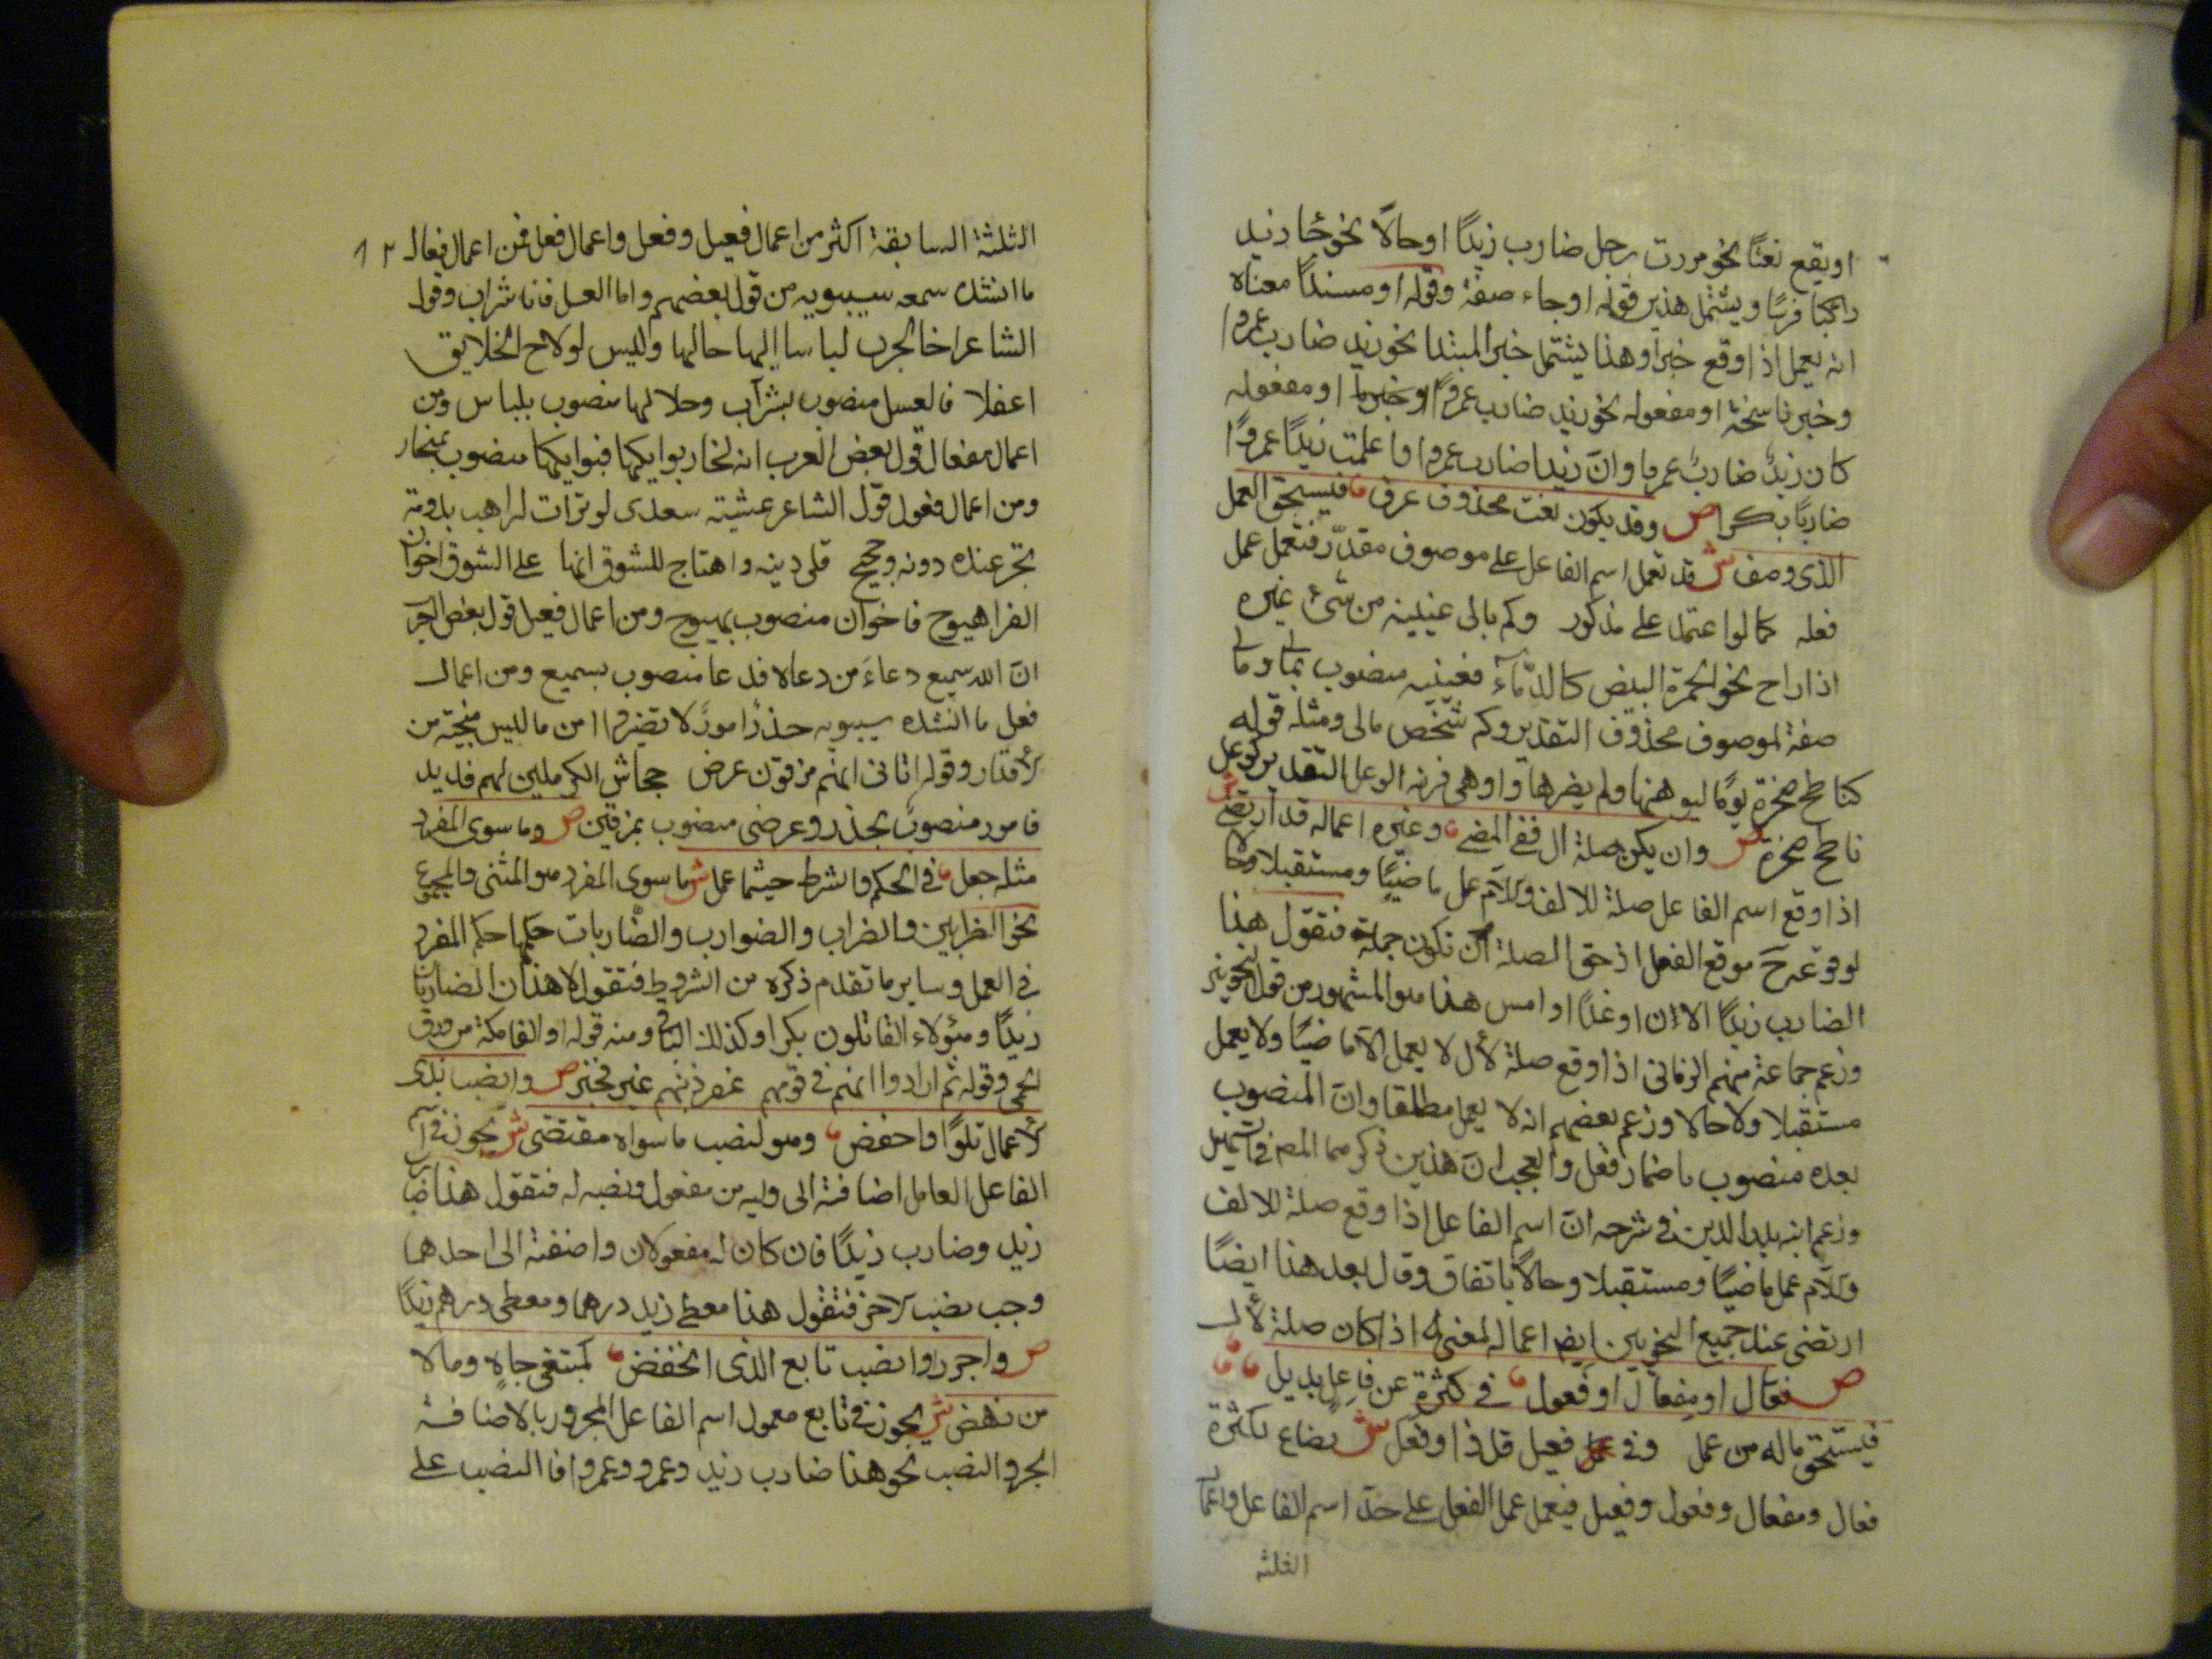 او يقع نعتًا نحو مررت برجل ضارب زيدًا او حالًا نحو جا زيد
راكبًا فرسًا ويشمل هذين قوله او جاء صفة وقوله او مسندًا معناه
انه يعمل اذا وقع خبرًا وهذا يشتمل خبر المبتدا نحو زيد ضارب عمروا
وخبر ناسخه او مفعوله نحو زيد ضارب عمروًا او خبر ما او مفعوله
كان زيدٌ ضاربٌ عمرما وانّ زيدا ضارب عمروا وما علمت زيدًا عمروًا
ضاربًا بكرا ص وقد يكون نعت محذوف عرف فيستحق العمل
الذى وصف ش قد تعمل اسم الفاعل على موصوف مقدّر فتعمل عمل
فعله كما لوا عتمد على مذكور وكم مالى عينيه من شيء غيره
اذا راح نحو الجمرة البيض كالدّماء فعينيه منصوب بمالى ومالى
صفة لموصوف محذوف التقدير وكم شخص مالى ومثله قوله
كناطح صخرة يومًا ليوهنها ولم يضرها واوهى قرنه الوعل التقدير كوعل
ناطح صخرة ص وان يكن صلة ال ففى المضى وغيره اعماله قد ارتضى ش
اذا وقع اسم الفاعل صلة للالف واللام عمل ماضيًا ومستقبلا وحالا
لوقوعه ح موقع الفعل اذ حق الصلة ان تكون جملة فتقول هذا
الضارب زيدًا الاان او غدًا او امس هذا هو المشهور من قول النحويين
وزعم جماعة منهم الرمانى اذا وقع صلة لأل لا يعمل الا ماضيًا ولا يعمل
مستقبلا ولا حالا وزعم بعضهم انه لا يعمل مطلقا وانّ المنصوب
بعده منصوب باضمار فعل والعجب انّ هذين ذكرهما المص فى التسهيل
وزعم ابنه بدر الدين فى شرحه انّ اسم الفاعل اذا وقع صلة للالف
واللام عمل ماضيًا ومستقبلا وحالًا باتفاق وقال بعد هذا ايضًا
ارتضى عند جميع النحويين ايضا اعماله لمعنى له اذا كان صلة لأل
ص فعال او مفعال او فعول فى كثرة عن فاعل بديل
فيستحق ماله من عمل وفى فعيل قل ذا وفعل ش يصاع بكثرة
فعال ومفعال وفعول وفعيل فيعمل عمل الفعل على حدّ اسم الفاعل واعمال
الثلثه
١٢
الثلثة السابقة اكثر من اعمال فعيل وفعل واعمال فعل فمن اعمال فعال
ما انشده سمعه سيبويه من قول بعضهم واما العسل فانا شراب وقول
الشاعر اخا الحرب لباسا اليها حالها وليس لولاح الخلايق
اعقلا فالعسل منصوب بشرآب وحلالها منصوب بلباس ومن
اعمال مفعال قول بعض العرب انه لنحار بوايكها فبوايكها منصوب بمنحار
ومن اعمال فعول قول الشاعر عشية سعدى لو ترات لراهب بدومة
تجر عنده دونه وحجيج قلى دينه واهتاج للشوق انها على الشوق اخوان
العزا هيوج فاخوان منصوب بهيوج ومن اعمال فعيل قول بعض العرب
انّ الله سميع دعاءَ من دعاه فدعا منصوب بسميع ومن اعمال
فعل ما انشده سيبويه حذرًا امورًا لا تضير واامن ما ليس منجيه من
لأقدار وقوله اتانى انهم مزقون عرضى جحاش الكرملين لهم فديد
فامور منصوب بحذر وعرضى منصوب بمزقين ص وما سوى المفرد
مثله جعل فى الحكم والشرط حيثما عمل ش ما سوى المفرد هو المثنى والمجموع
نحو الضرابين والضراب والضوارب والضّاربات حكمها حكم المفرد
فى العمل وساير ما تقدم ذكره من الشروط فتقول لاهذان الضاربان
زيدًا وهؤلاء القاتلون بكرا وكذلك الباقى ومنه قوله اوالفا مكة من ورق
الحمى وقوله ثم ارادوا انهم فى قومهم غفر ذنبهم غير فخر ص وانصب بذى
لأعمال تلوًا واخفض وهو لنصب ما سواه مقتضى ش يجوز فى اسم
الفاعل العامل اضافته الى وليه من مفعول ونصبه له فتقول هذا ضارب
زيد وضارب زيدًا فان كان له مفعولان واضفته الى احدهما
وجب نصب لاخر فتقول هذا معطى زيد درهما ومعطى درهم زيدًا
ص واجرر او انصب تابع الذى انخفض كمبتغى جاهٍ ومالا
من نهض ش يجوز فى تابع معمول اسم الفاعل المجرور بالاضافة
الجر والنصب نحو هذا ضارب زيد وعمرو وعمروا فا النصب على